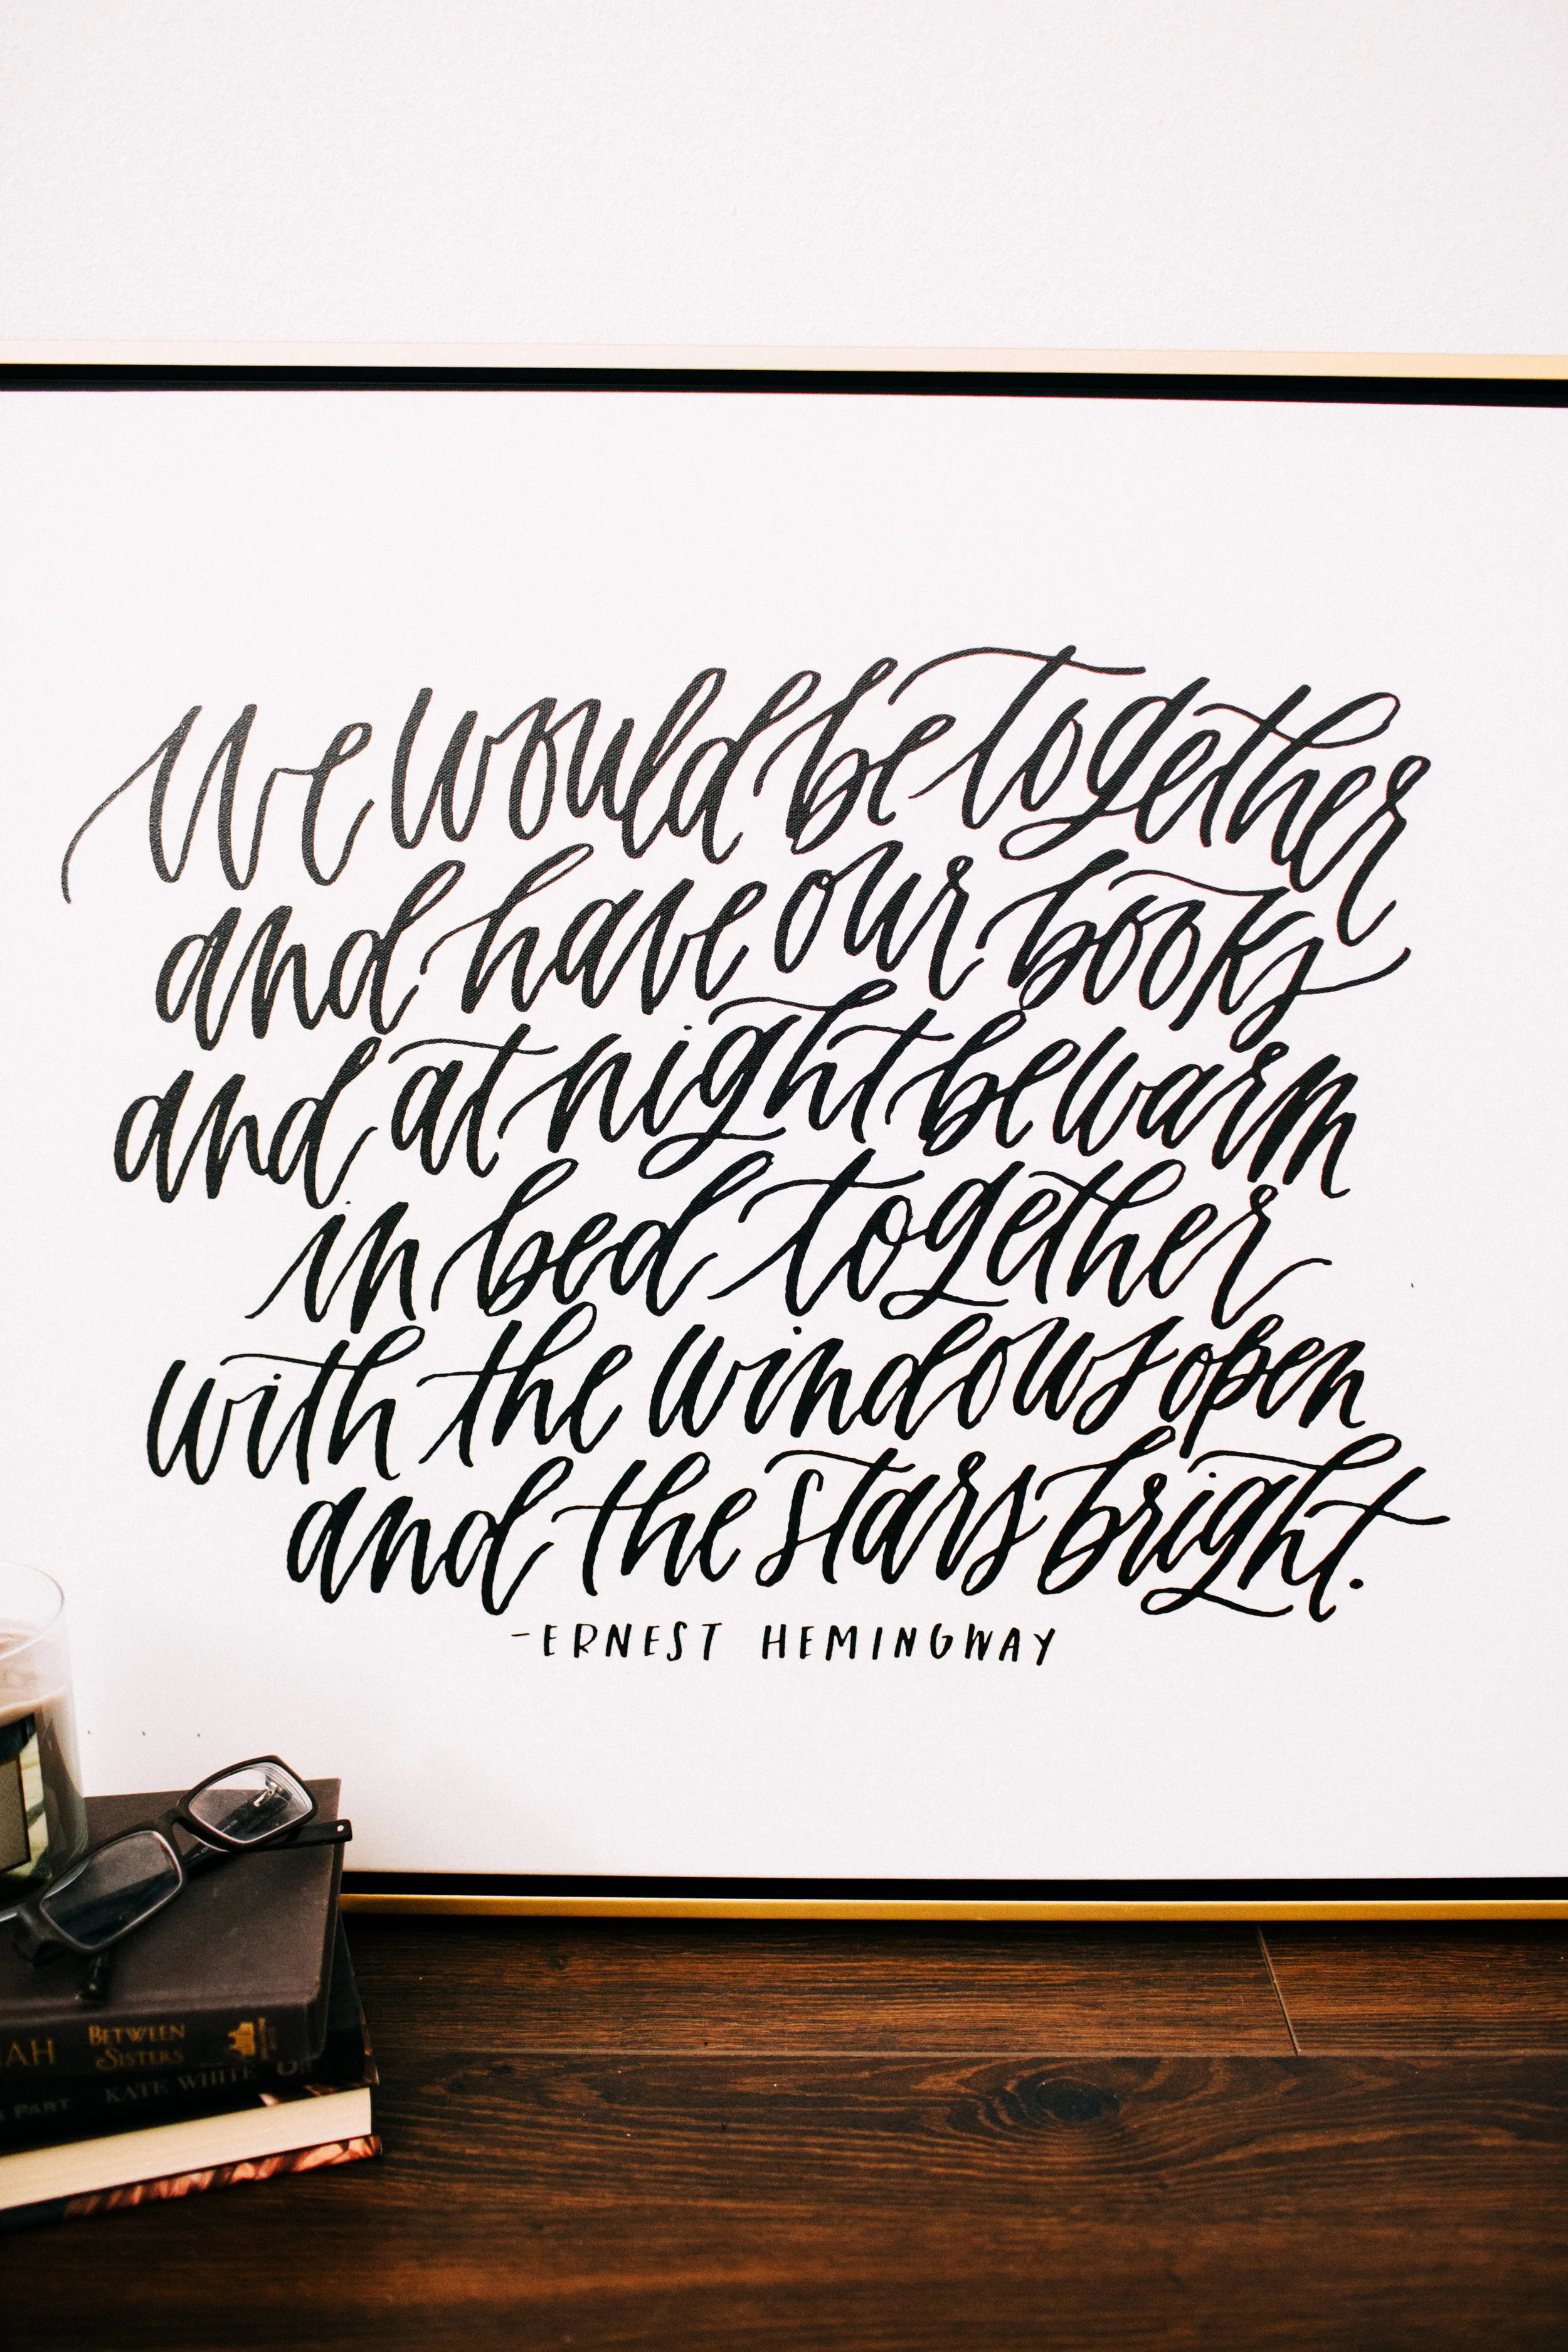 We would be together
and have our books
and at night be warm
in bed together
with the windows open
and the stars bright.
-ERNEST HEMINGWAY
BETWEEN
SISTERS
PART KATE WHITE